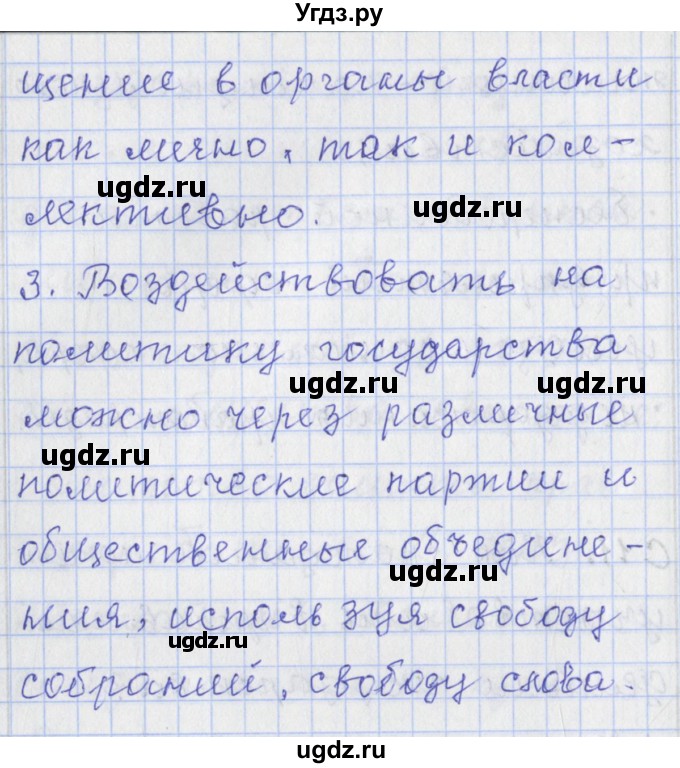 Угдз.ру
щение в органы власти
как лично, так и кол-
ugdz.ru
ugdz.ru
лективно.
3. Воздействовать на
политику государства
ugdz.ru
ugdz.ru
можно через различные
ugdz.ru
политические партии и
общественные объедине-
ugdz.ru
ния, используя свободу
ugdz.ru
собраний, свободу слова.
ugdz.ru